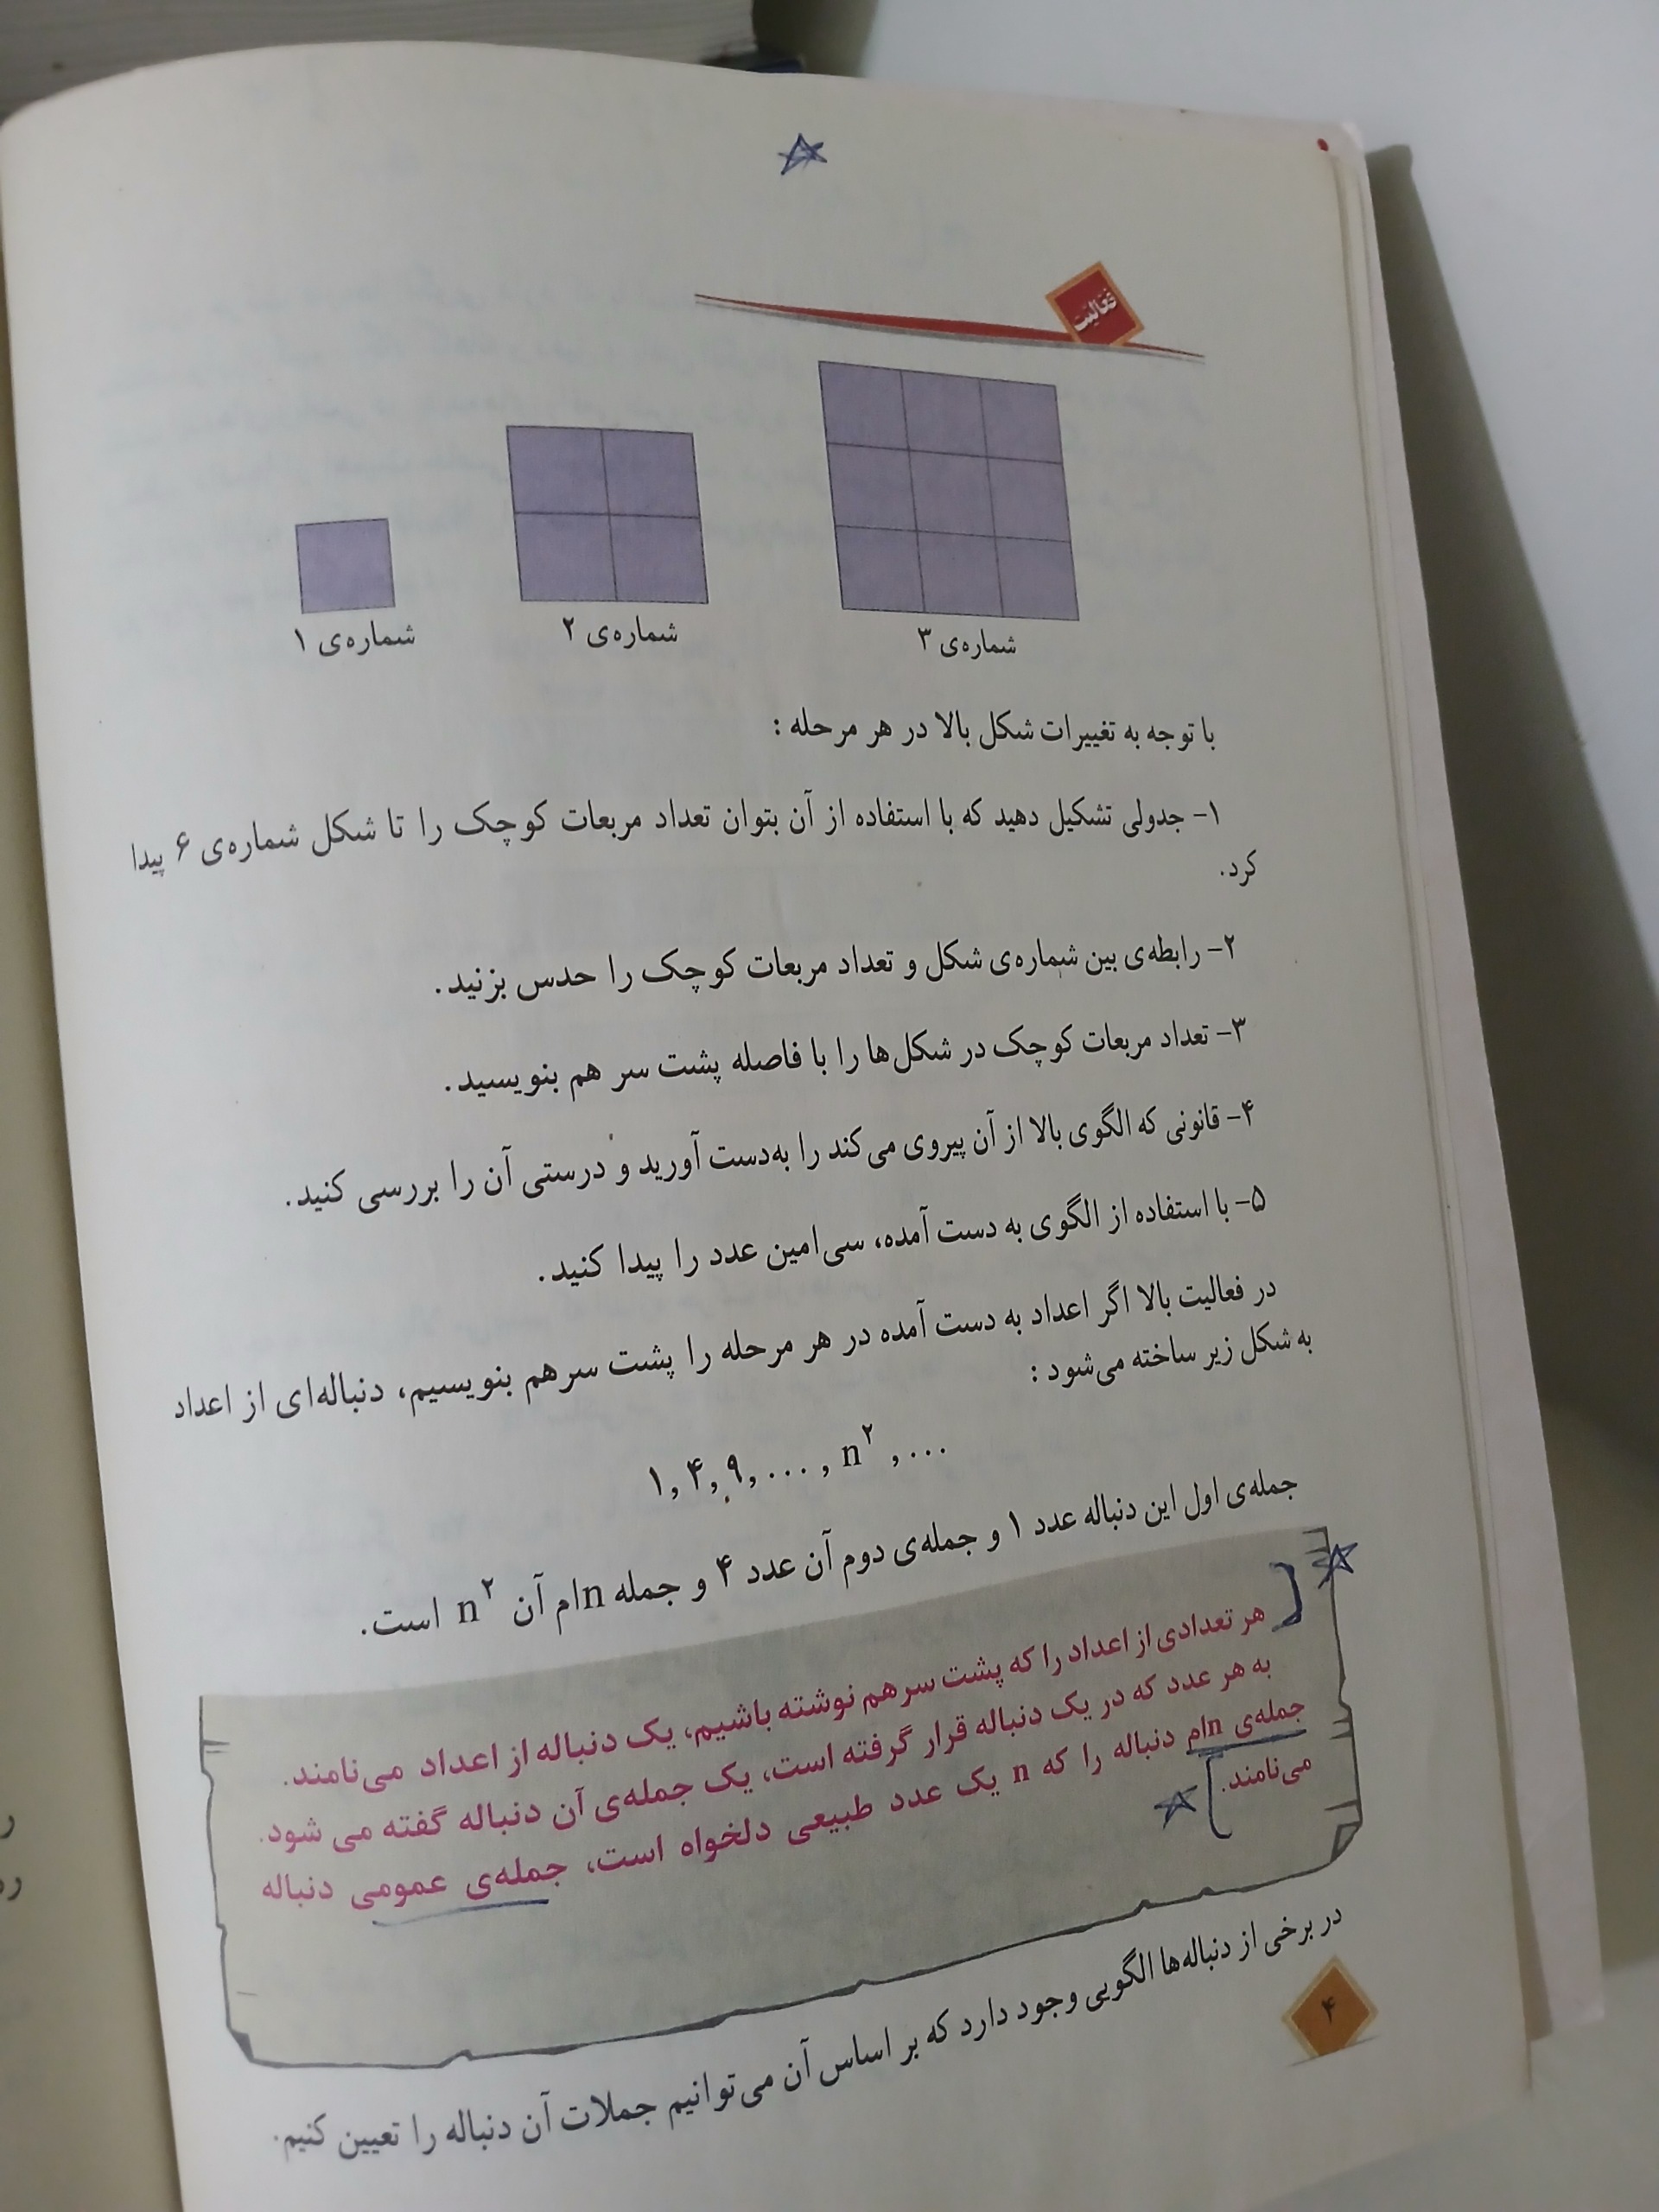 فعّالیّت
شماره‌ی ۱
شماره‌ی ۲
شماره‌ی ۳
با توجه به تغییرات شکل بالا در هر مرحله :
۱- جدولی تشکیل دهید که با استفاده از آن بتوان تعداد مربعات کوچک را تا شکل شماره‌ی ۶ پیدا
کرد.
۲- رابطه‌ی بین شماره‌ی شکل و تعداد مربعات کوچک را حدس بزنید.
۳- تعداد مربعات کوچک در شکل‌ها را با فاصله پشت سر هم بنویسید.
۴- قانونی که الگوی بالا از آن پیروی می‌کند را به‌دست آورید و درستی آن را بررسی کنید.
۵- با استفاده از الگوی به دست آمده، سی‌امین عدد را پیدا کنید.
در فعالیت بالا اگر اعداد به دست آمده در هر مرحله را پشت سرهم بنویسیم، دنباله‌ای از اعداد
به شکل زیر ساخته می‌شود :
۱, ۴, ۹, ... , n۲ , ...
جمله‌ی اول این دنباله عدد ۱ و جمله‌ی دوم آن عدد ۴ و جمله nام آن n۲ است.
هر تعدادی از اعداد را که پشت سرهم نوشته باشیم، یک دنباله از اعداد می‌نامند.
به هر عدد که در یک دنباله قرار گرفته است، یک جمله‌ی آن دنباله گفته می شود.
جمله‌ی nام دنباله را که n یک عدد طبیعی دلخواه است، جمله‌ی عمومی دنباله
می‌نامند.
در برخی از دنباله‌ها الگویی وجود دارد که بر اساس آن می‌توانیم جملات آن دنباله را تعیین کنیم.
۴